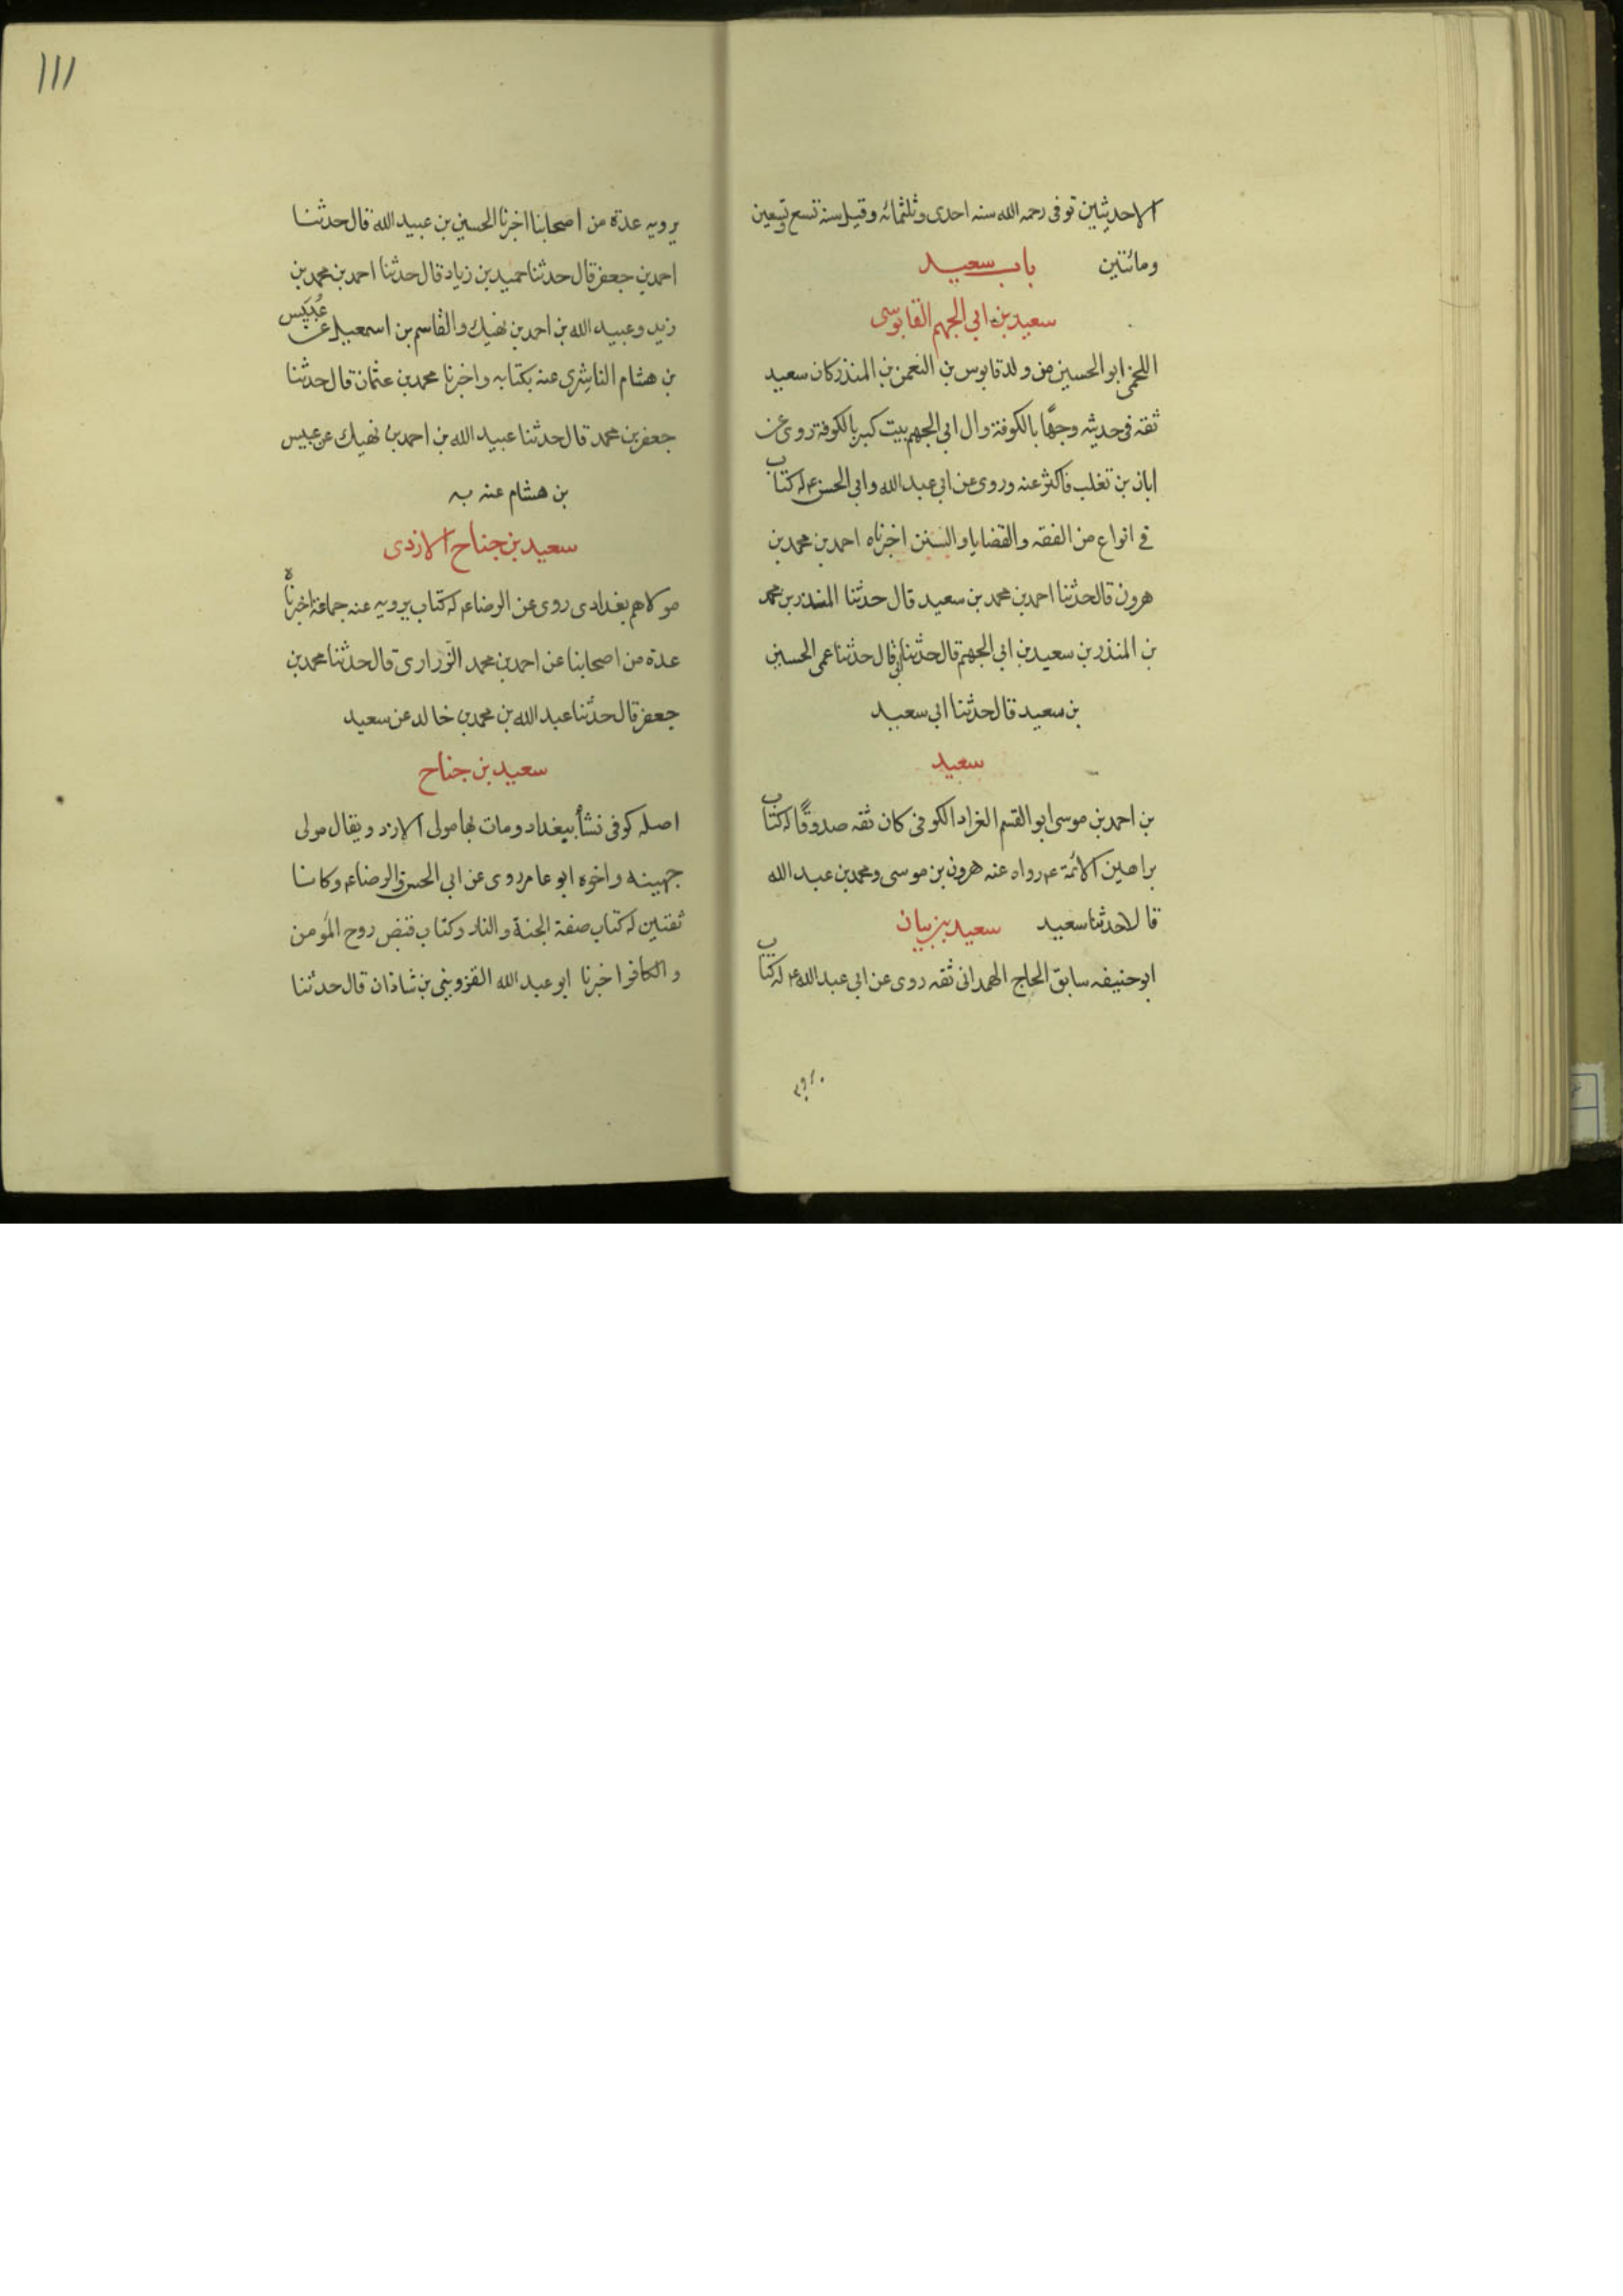 الا حديثين توفى رحمه الله سنه احدى وثلثمائه وقيل سنة تسع وتسعين
ومائتين باب سعيد
سعيد بن ابى الجهم القابوسى
اللخمى ابو الحسين من ولد قابوس بن النعمن بن المنذر كان سعيد
ثقه فى حديثه وجهًا بالكوفة وال ابى الجهم بيت كبير بالكوفة روى عن
ابان بن تغلب فاكثر عنه وروى عن ابى عبد الله وابى الحسن عم له كتاب
فى انواع من الفقه والقضايا والسنن اخبرناه احمد بن محمد بن
هرون قال حدثنا احمد بن محمد بن سعيد قال حدثنا المنذر بن محمد
بن المنذر بن سعيد بن ابى الجهم قال حدثنا ابى قال حدثنا عمى الحسين
بن سعيد قال حدثنا ابى سعيد
سعيد
بن احمد بن موسى ابو القسم الغراد الكوفى كان ثقه صدوقًا له كتاب
براهين الائمة عم رواه عنه هرون بن موسى ومحمد بن عبد الله
قالا حدثنا سعيد سعيد بن بيان
ابو حنيفه سابق الحاج الهمدانى ثقه روى عن ابى عبد الله عم له كتاب
يرويه
١١١
يرويه عدة من اصحابنا اخبرنا الحسين بن عبيد الله قال حدثنا
احمد بن جعفر قال حدثنا حميد بن زياد قال حدثنا احمد بن محمد بن
زيد وعبيد الله بن احمد بن نهيك والقاسم بن اسمعيل عن عُبَيس
بن هشام الناشرى عنه بكتابه واخبرنا محمد بن عثمان قال حدثنا
جعفر بن محمد قال حدثنا عبيد الله بن احمد بن نهيك عن عبيس
بن هشام عنه به
سعيد بن جناح الازدى
مولاهم بغدادى روى عن الرضا عم له كتاب يرويه عنه جماعة اخبرناه
عدة من اصحابنا عن احمد بن محمد الزرارى قال حدثنا محمد بن
جعفر قال حدثنا عبد الله بن محمد بن خالد عن سعيد
سعيد بن جناح
اصله كوفى نشأ ببغداد ومات بها مولى الازد ويقال مولى
جهينه واخوه ابو عامر روى عن ابى الحسن والرضا عم وكانا
ثقتين له كتاب صفة الجنة والنار وكتاب قبض روح المؤمن
والكافر اخبرنا ابو عبد الله القزوينى بن شاذان قال حدثنا